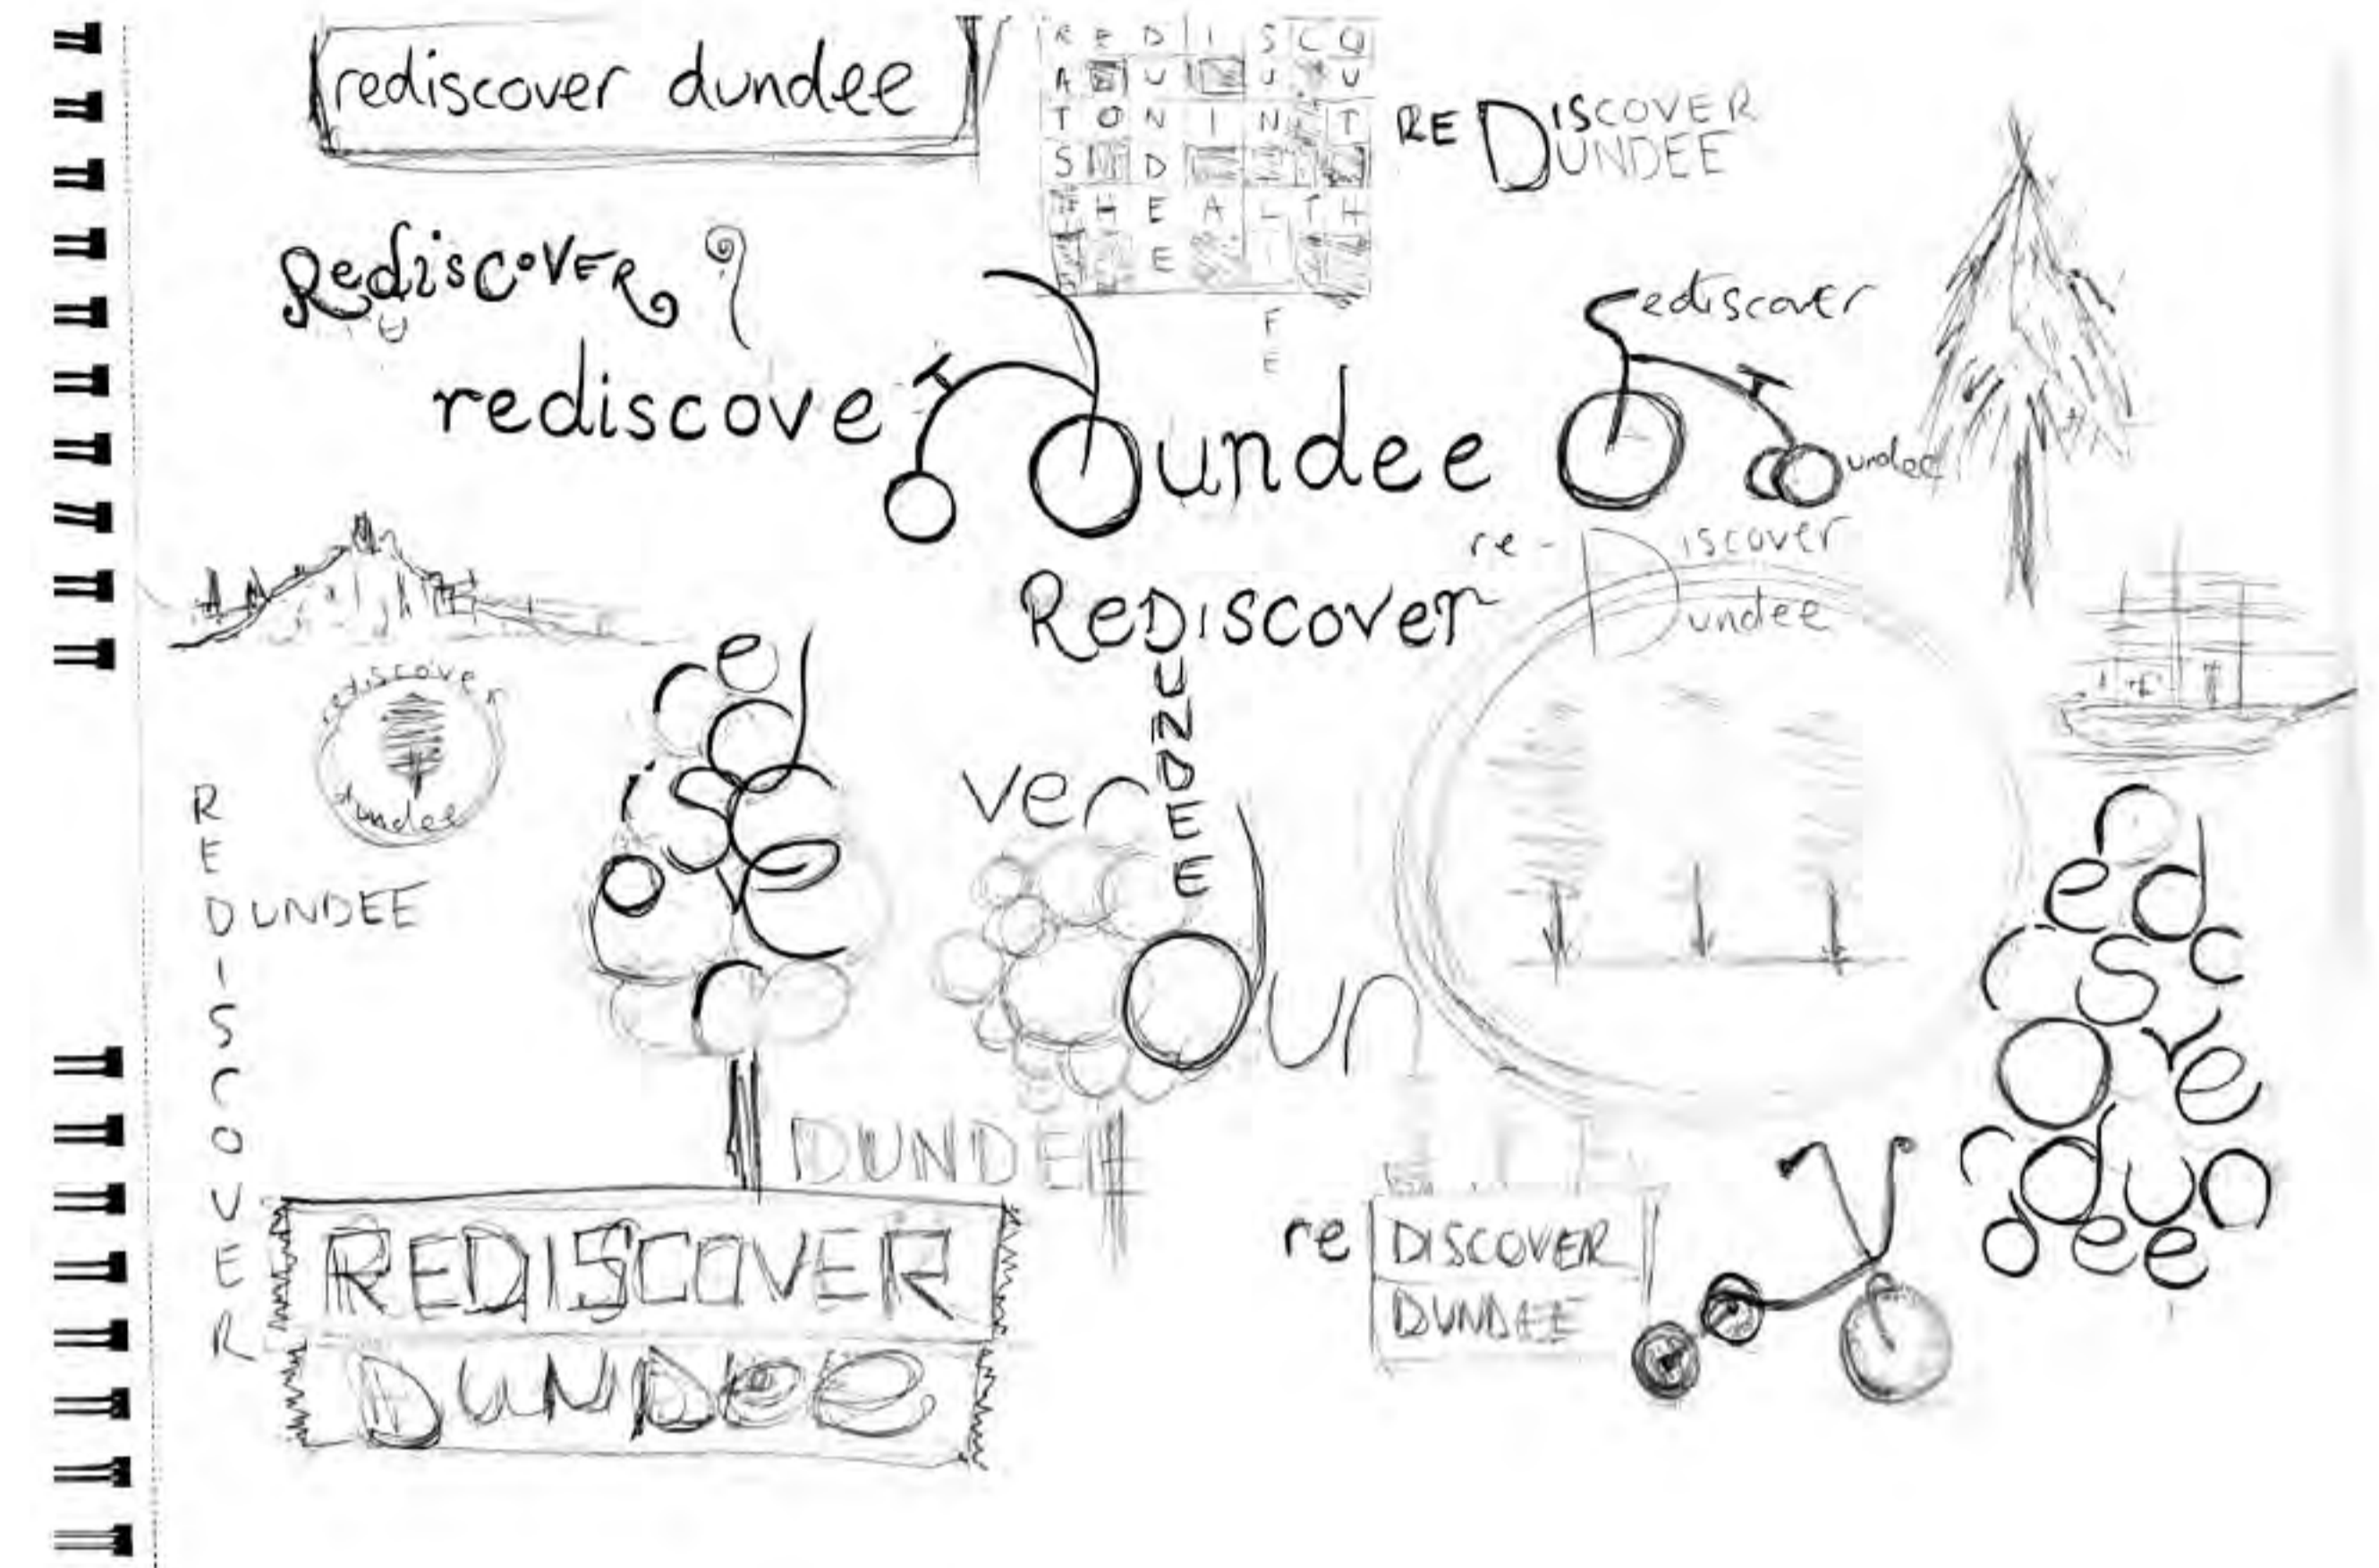 rediscover dundee
R E D I S C O
A U U V
T O N I N T
S D
H E A L T H
E I
F
E
RE DISCOVER
DUNDEE
RediscoVER
rediscove
undee
rediscover
undee
re-Discover
undee
ReDiscover
UNDEE
rediscover
dundee
REDISCOVER
DUNDEE
rediscover
DUNDEE
ver
dun
red
isc
ove
rdun
dee
REDISCOVER
DUNDee
re DISCOVER
DUNDEE